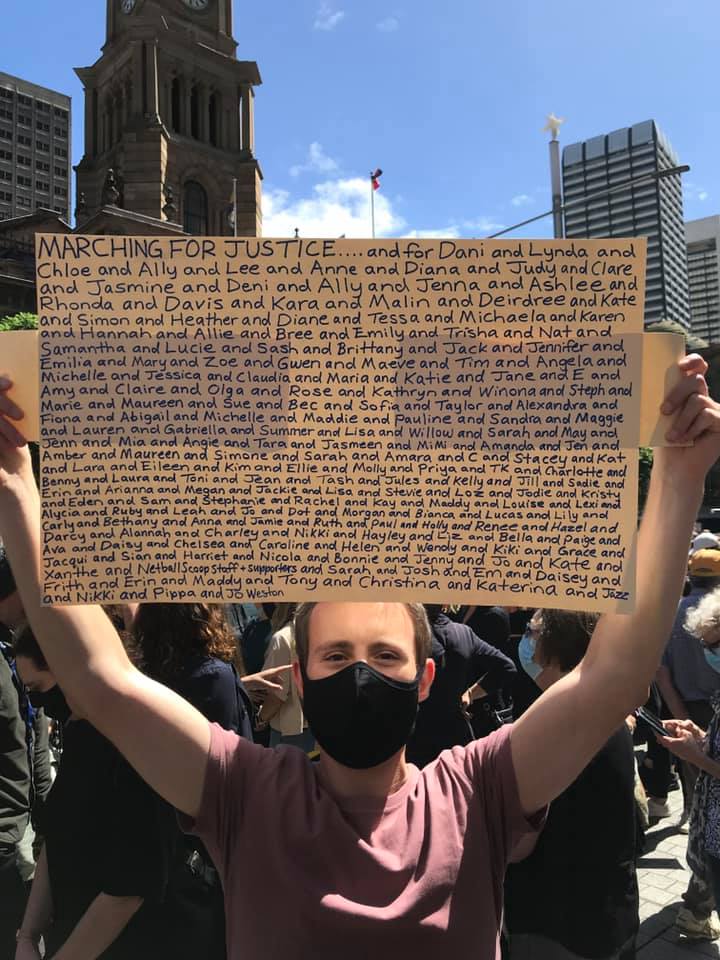 MARCHING FOR JUSTICE.... and for Dani and Lynda and
Chloe and Ally and Lee and Anne and Diana and Judy and Clare
and Jasmine and Deni and Ally and Jenna and Ashlee and
Rhonda and Davis and Kara and Malin and Deirdree and Kate
and Simon and Heather and Diane and Tessa and Michaela and Karen
and Hannah and Allie and Bree and Emily and Trisha and Nat and
Samantha and Lucie and Sash and Brittany and Jack and Jennifer and
Emilia and Mary and Zoe and Gwen and Maeve and Tim and Angela and
Michelle and Jessica and Claudia and Maria and Katie and Jane and E and
Amy and Claire and Olga and Rose and Kathryn and Winona and Steph and
Marie and Maureen and Sue and Bec and Sofia and Taylor and Alexandra and
Fiona and Abigail and Michelle and Maddie and Pauline and Sandra and Maggie
and Lauren and Gabriella and Summer and Lisa and Willow and Sarah and May and
Jenn and Mia and Angie and Tara and Jasmeen and MiMi and Amanda and Jen and
Amber and Maureen and Simone and Sarah and Amara and C and Stacey and Kat
and Lara and Eileen and Kim and Ellie and Molly and Priya and TK and Charlotte and
Benny and Laura and Toni and Jean and Tash and Jules and Kelly and Jill and Sadie and
Erin and Arianna and Megan and Jackie and Lisa and Stevie and Loz and Jodie and Kristy
and Eden and Sam and Stephanie and Rachel and Kay and Maddy and Louise and Lexi and
Alycia and Ruby and Leah and Jo and Dot and Morgan and Bianca and Lucas and Lily and
Carly and Bethany and Anna and Jamie and Ruth and Paul and Holly and Renee and Hazel and
Darcy and Alannah and Charley and Nikki and Hayley and Liz and Bella and Paige and
Ava and Daisy and Chelsea and Caroline and Helen and Wendy and Kiki and Grace and
Jacqui and Sian and Harriet and Nicola and Bonnie and Jenny and Jo and Kate and
Xanthe and NetballScoop Staff + supporters and Sarah and Josh and Em and Daisey and
Frith and Erin and Maddy and Tony and Christina and Katerina and Jazz
and Nikki and Pippa and Jo Weston